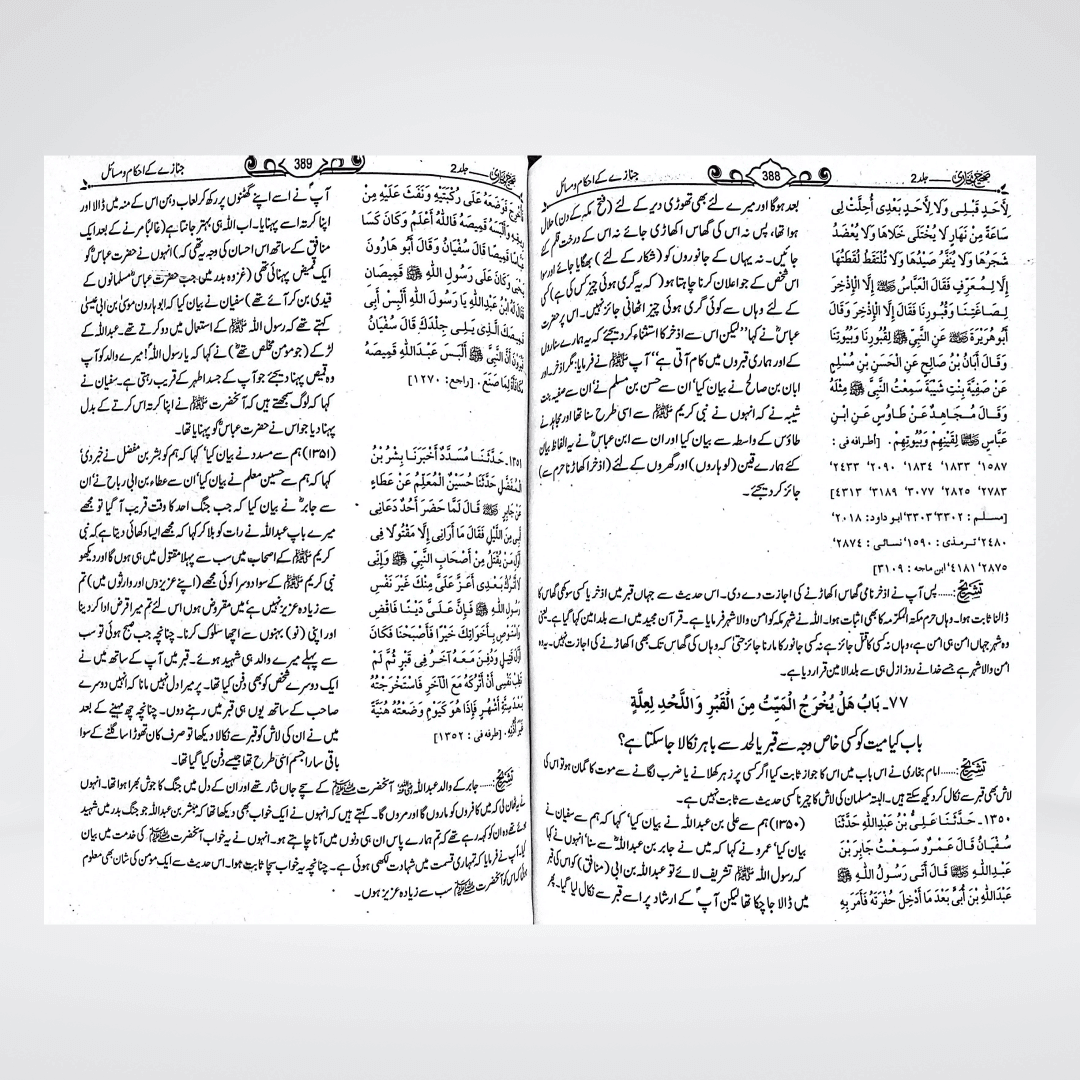 صحیح بخاری
جلد 2
388
جنازے کے احکام و مسائل
لِأَحَدٍ قَبْلِي وَلَا لِأَحَدٍ بَعْدِي أُحِلَّتْ لِي
سَاعَةً مِنْ نَهَارٍ لَا يُخْتَلَى خَلَاهَا وَلَا يُعْضَدُ
شَجَرُهَا وَلَا يُنَفَّرُ صَيْدُهَا وَلَا تُلْتَقَطُ لُقَطَتُهَا
إِلَّا لِمُعَرِّفٍ فَقَالَ الْعَبَّاسُ إِلَّا الْإِذْخِرَ
لِصَاغَتِنَا وَقُبُورِنَا فَقَالَ إِلَّا الْإِذْخِرَ وَقَالَ
أَبُو هُرَيْرَةَ عَنِ النَّبِيِّ ﷺ لِقُبُورِنَا وَبُيُوتِنَا
وَقَالَ أَبَانُ بْنُ صَالِحٍ عَنِ الْحَسَنِ بْنِ مُسْلِمٍ
عَنْ صَفِيَّةَ بِنْتِ شَيْبَةَ سَمِعْتُ النَّبِيَّ ﷺ مِثْلَهُ
وَقَالَ مُجَاهِدٌ عَنْ طَاوُسٍ عَنِ ابْنِ
عَبَّاسٍ لِقَيْنِهِمْ وَبُيُوتِهِمْ. [اطرافه في:
١٥٨٧، ١٨٣٣، ١٨٣٤، ٢٠٩٠، ٢٤٣٣،
٢٧٨٣، ٢٨٢٥، ٣٠٧٧، ٣١٨٩، ٤٣١٣]
[مسلم: ٣٣٠٢، ٣٣٠٣؛ ابو داود: ٢٠١٨،
٢٤٨٠؛ ترمذی: ١٥٩٠؛ نسائی: ٢٨٧٤،
٢٨٧٥، ٤١٨١؛ ابن ماجه: ٣١٠٩]
بعد ہوگا اور میرے لئے بھی تھوڑی دیر کے لئے (فتح مکہ کے دن) حلال
ہوا تھا، پس نہ اس کی گھاس اکھاڑی جائے نہ اس کے درخت قلم کئے
جائیں۔ نہ یہاں کے جانوروں کو (شکار کے لئے) بھگایا جائے اور سوا
اس شخص کے جو اعلان کرنا چاہتا ہو (کہ یہ گری ہوئی چیز کس کی ہے) کسی
کے لئے وہاں سے کوئی گری ہوئی چیز اٹھانی جائز نہیں۔ اس پر حضرت
عباسؓ نے کہا "لیکن اس سے اذخر کا استثناء کر دیجئے کہ یہ ہمارے سناروں
کے اور ہماری قبروں میں کام آتی ہے" آپ ﷺ نے فرمایا: مگر اذخر اور
ابان بن صالح نے بیان کیا، ان سے حسن بن مسلم نے، ان سے صفیہ بنت
شیبہ نے کہ انہوں نے نبی کریم ﷺ سے اسی طرح سنا تھا اور مجاہد نے
طاؤس کے واسطہ سے بیان کیا اور ان سے ابن عباسؓ نے یہ الفاظ بیان
کئے ہمارے قین (لوہاروں) اور گھروں کے لئے (اذخر اکھاڑنا حرم سے)
جائز کر دیجئے۔
تشریح:...... پس آپ نے اذخر نامی گھاس اکھاڑنے کی اجازت دے دی۔ اس حدیث سے جہاں قبر میں اذخر یا کسی سوکھی گھاس کا
ڈالنا ثابت ہوا۔ وہاں حرم مکۃ المکرمہ کا بھی اثبات ہوا۔ اللہ نے شہر مکہ کو امن والا شہر فرمایا ہے۔ قرآن مجید میں اسے بلد امین کہا گیا ہے۔ یعنی
وہ شہر جہاں امن ہی امن ہے، وہاں نہ کسی کا قتل جائز ہے نہ کسی جانور کا مارنا جائز حتیٰ کہ وہاں کی گھاس تک بھی اکھاڑنے کی اجازت نہیں۔ یہ وہ
امن والا شہر ہے جسے خدا نے روز ازل ہی سے بلد الامین قرار دیا ہے۔
٧٧۔ بَابٌ هَلْ يُخْرَجُ الْمَيِّتُ مِنَ الْقَبْرِ وَاللَّحْدِ لِعِلَّةٍ
باب کیا میت کو کسی خاص وجہ سے قبر یا لحد سے باہر نکالا جا سکتا ہے؟
تشریح:...... امام بخاری نے اس باب میں اس کا جواز ثابت کیا اگر کسی پر زہر کھلانے یا ضرب لگانے سے موت کا گمان ہو تو اس کی
لاش بھی قبر سے نکال کر دیکھ سکتے ہیں۔ البتہ مسلمان کی لاش کا چیرنا کسی حدیث سے ثابت نہیں ہے۔
١٣٥٠۔ حَدَّثَنَا عَلِيُّ بْنُ عَبْدِاللَّهِ حَدَّثَنَا
سُفْيَانُ قَالَ عَمْرٌو سَمِعْتُ جَابِرَ بْنَ
عَبْدِاللَّهِ قَالَ أَتَى رَسُولُ اللَّهِ ﷺ
عَبْدَاللَّهِ بْنَ أُبَيٍّ بَعْدَ مَا أُدْخِلَ حُفْرَتَهُ فَأَمَرَ بِهِ
(۱۳۵۰) ہم سے علی بن عبداللہ نے بیان کیا، کہا کہ ہم سے سفیان نے
بیان کیا، عمرو نے کہا کہ میں نے جابر بن عبداللہؓ سے سنا، انہوں نے کہا
کہ رسول اللہ ﷺ تشریف لائے تو عبداللہ بن ابی (منافق) کو اس کی قبر
میں ڈالا جا چکا تھا لیکن آپؐ کے ارشاد پر اسے قبر سے نکال لیا گیا۔ پھر
صحیح بخاری
جلد 2
389
جنازے کے احکام و مسائل
فَأُخْرِجَ فَوَضَعَهُ عَلَى رُكْبَتَيْهِ وَنَفَثَ عَلَيْهِ مِنْ
رِيقِهِ وَأَلْبَسَهُ قَمِيصَهُ فَاللَّهُ أَعْلَمُ وَكَانَ كَسَا
عَبَّاسًا قَمِيصًا قَالَ سُفْيَانُ وَقَالَ أَبُو هَارُونَ
يَحْيَى وَكَانَ عَلَى رَسُولِ اللَّهِ ﷺ قَمِيصَانِ
فَقَالَ لَهُ ابْنُ عَبْدِاللَّهِ يَا رَسُولَ اللَّهِ أَلْبِسْ أَبِي
قَمِيصَكَ الَّذِي يَلِي جِلْدَكَ قَالَ سُفْيَانُ
فَيُرَوْنَ أَنَّ النَّبِيَّ ﷺ أَلْبَسَ عَبْدَاللَّهِ قَمِيصَهُ
مُكَافَأَةً لِمَا صَنَعَ. [راجع: ١٢٧٠]
آپؐ نے اسے اپنے گھٹنوں پر رکھ کر لعاب دہن اس کے منہ میں ڈالا اور
اپنا کرتہ اسے پہنایا۔ اب اللہ ہی بہتر جانتا ہے (غالباً مرنے کے بعد ایک
منافق کے ساتھ اس احسان کی وجہ یہ تھی کہ) انہوں نے حضرت عباسؓ کو
ایک قمیض پہنائی تھی (غزوہ بدر میں جب حضرت عباسؓ مسلمانوں کے
قیدی بن کر آئے تھے) سفیان نے بیان کیا کہ ابوہارون موسیٰ بن ابی عیسیٰ
کہتے تھے کہ رسول اللہ ﷺ کے استعمال میں دو کرتے تھے۔ عبداللہ کے
لڑکے (جو مومن مخلص تھے) نے کہا کہ یا رسول اللہ! میرے والد کو آپ
وہ قمیص پہنا دیجئے جو آپ کے جسد اطہر کے قریب رہتی ہے۔ سفیان نے
کہا کہ لوگ سمجھتے ہیں کہ آنحضرت ﷺ نے اپنا کرتہ اس کرتے کے بدل
پہنا دیا جو اس نے حضرت عباسؓ کو پہنایا تھا۔
١٣٥١۔ حَدَّثَنَا مُسَدَّدٌ أَخْبَرَنَا بِشْرُ بْنُ
الْمُفَضَّلِ حَدَّثَنَا حُسَيْنٌ الْمُعَلِّمُ عَنْ عَطَاءٍ
عَنْ جَابِرٍ قَالَ لَمَّا حَضَرَ أُحُدٌ دَعَانِي
أَبِي مِنَ اللَّيْلِ فَقَالَ مَا أُرَانِي إِلَّا مَقْتُولًا فِي
أَوَّلِ مَنْ يُقْتَلُ مِنْ أَصْحَابِ النَّبِيِّ ﷺ وَإِنِّي
لَا أَتْرُكُ بَعْدِي أَعَزَّ عَلَيَّ مِنْكَ غَيْرَ نَفْسِ
رَسُولِ اللَّهِ ﷺ فَإِنَّ عَلَيَّ دَيْنًا فَاقْضِ
وَاسْتَوْصِ بِأَخَوَاتِكَ خَيْرًا فَأَصْبَحْنَا فَكَانَ
أَوَّلَ قَتِيلٍ وَدُفِنَ مَعَهُ آخَرُ فِي قَبْرٍ ثُمَّ لَمْ
تَطِبْ نَفْسِي أَنْ أَتْرُكَهُ مَعَ الْآخَرِ فَاسْتَخْرَجْتُهُ
بَعْدَ سِتَّةِ أَشْهُرٍ فَإِذَا هُوَ كَيَوْمِ وَضَعْتُهُ هُنَيَّةً
غَيْرَ أُذُنِهِ. [طرفه في: ١٣٥٢]
(۱۳۵۱) ہم سے مسدد نے بیان کیا، کہا کہ ہم کو بشر بن مفضل نے خبر دی،
کہا کہ ہم سے حسین معلم نے بیان کیا، ان سے عطاء بن ابی رباح نے ان
سے جابرؓ نے بیان کیا کہ جب جنگ احد کا وقت قریب آ گیا تو مجھے
میرے باپ عبداللہ نے رات کو بلا کر کہا کہ مجھے ایسا دکھائی دیتا ہے کہ نبی
کریم ﷺ کے اصحاب میں سب سے پہلا مقتول میں ہی ہوں گا اور دیکھو
نبی کریم ﷺ کے سوا دوسرا کوئی مجھے (اپنے عزیزوں اور وارثوں میں) تم
سے زیادہ عزیز نہیں ہے، میں مقروض ہوں اس لئے تم میرا قرض ادا کر دینا
اور اپنی (نو) بہنوں سے اچھا سلوک کرنا۔ چنانچہ جب صبح ہوئی تو سب
سے پہلے میرے والد ہی شہید ہوئے۔ قبر میں آپ کے ساتھ میں نے
ایک دوسرے شخص کو بھی دفن کیا تھا۔ پر میرا دل نہیں مانا کہ انہیں دوسرے
صاحب کے ساتھ یوں ہی قبر میں رہنے دوں۔ چنانچہ چھ مہینے کے بعد
میں نے ان کی لاش کو قبر سے نکالا دیکھا تو صرف کان تھوڑا سا گلنے کے سوا
باقی سارا جسم اسی طرح تھا جیسے دفن کیا گیا تھا۔
تشریح:...... جابر کے والد عبداللہ آنحضرت ﷺ کے سچے جاں نثار تھے اور ان کے دل میں جنگ کا جوش بھرا ہوا تھا۔ انہوں
نے یہ ٹھان لی کہ میں کافروں کو ماروں گا اور مروں گا۔ کہتے ہیں کہ انہوں نے ایک خواب بھی دیکھا تھا کہ مبشر بن عبداللہ جو جنگ بدر میں شہید
ہوئے تھے وہ ان کو کہہ رہے تھے کہ تم ہمارے پاس ان ہی دنوں میں آنا چاہتے ہو۔ انہوں نے یہ خواب آنحضرت ﷺ کی خدمت میں بیان
کیا، آپ نے فرمایا کہ تمہاری قسمت میں شہادت لکھی ہوئی ہے۔ چنانچہ یہ خواب سچا ثابت ہوا۔ اس حدیث سے ایک مؤمن کی شان بھی معلوم
ہوئی کہ اس کو آنحضرت ﷺ سب سے زیادہ عزیز ہوں۔